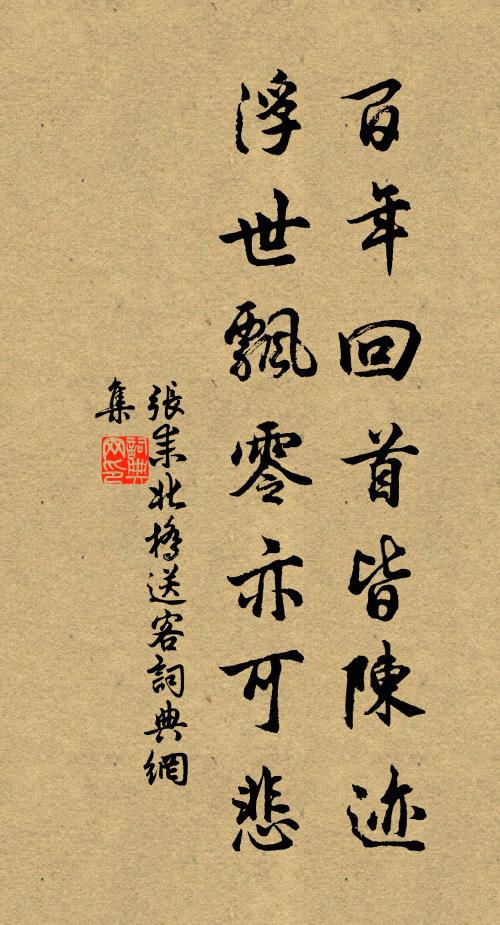 百年回首皆陳迹
浮世飄零亦可悲
張耒北橋送客詞典網
集
詞典
网印